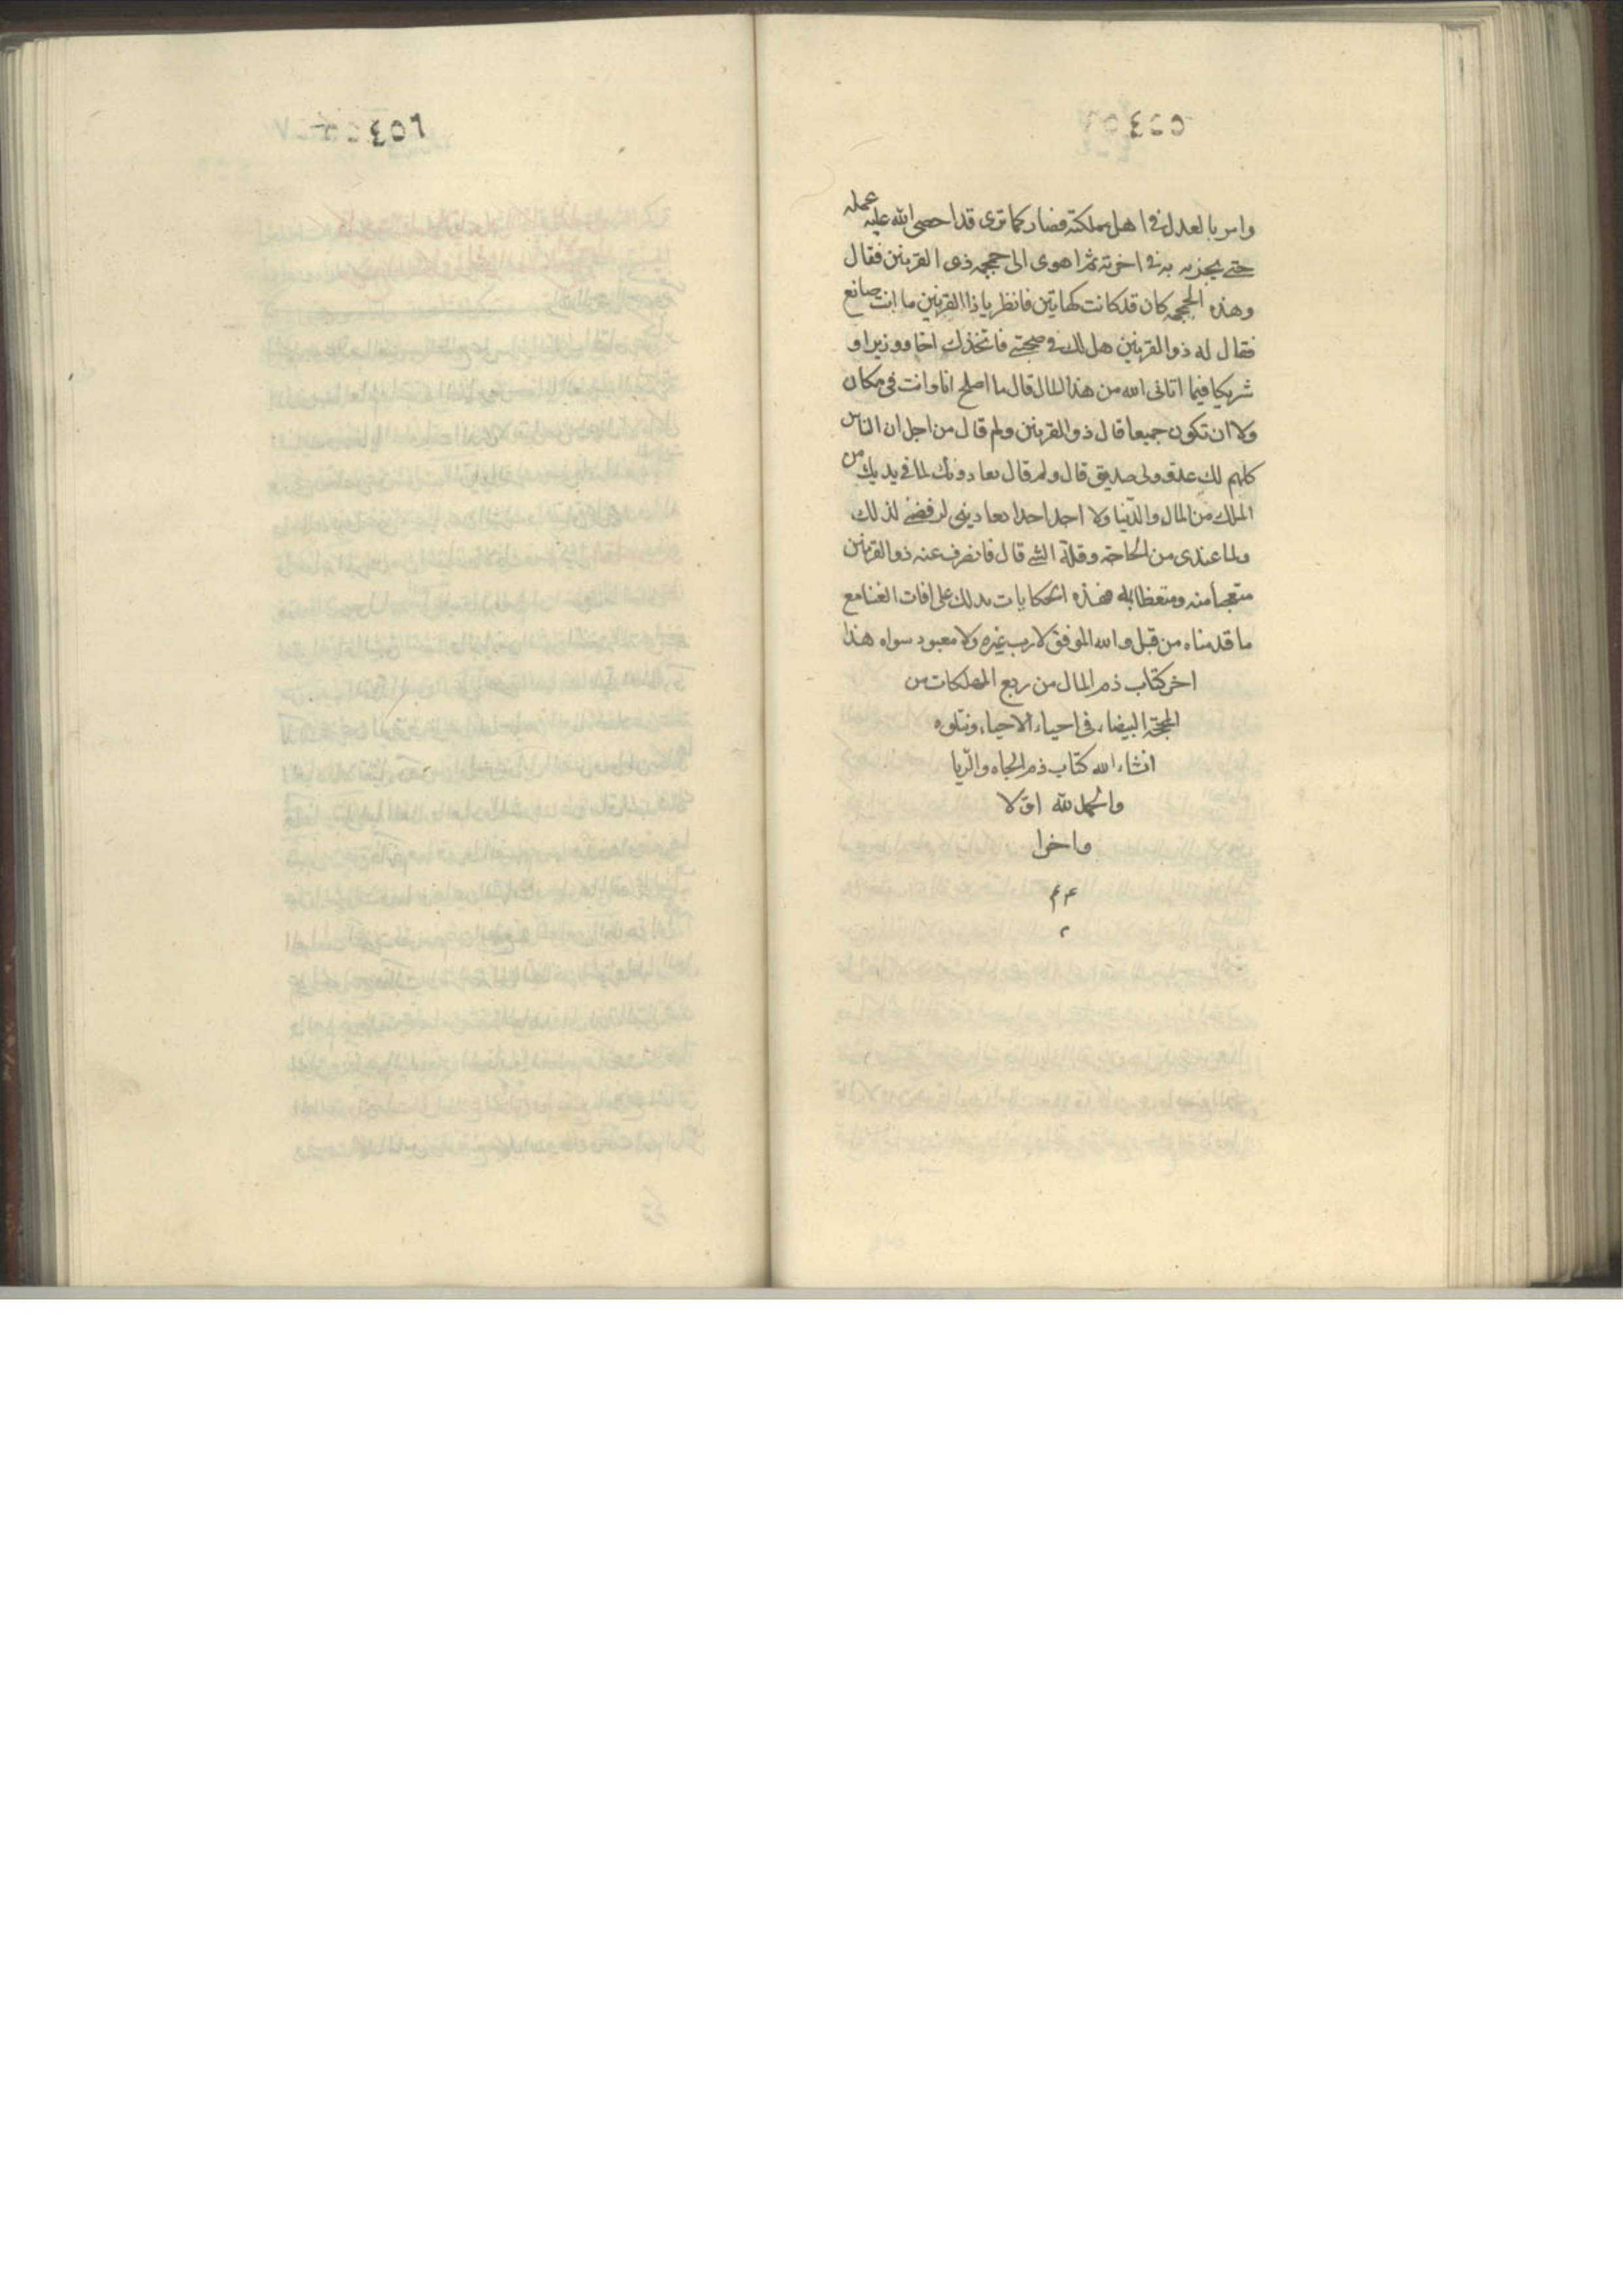 ٤٥٥
وامر بالعدل فی اهل مملكته فصار كما تری قد احصی الله علیه عمله
حتی یجزیه به فی اخرته ثم اهوی الی جمجمه ذی القرنین فقال
وهذه الجمجمه كان قد كانت كهاتین فانظر یا ذا القرنین ما انت صانع
فقال له ذو القرنین هل لك فی صحبتی فاتخذك اخا ووزیرا و
شریكا فیما اتانی الله من هذا المال قال ما اصلح انا وانت فی مكان
ولا ان نكون جمیعا قال ذو القرنین ولم قال من اجل ان الناس
كلهم لك عدو ولی صدیق قال ولم قال یعادونك لما فی یدیك من
الملك من المال والدنیا ولا اجد احدا یعادینی لرفضی لذلك
ولما عندی من الحاجة وقلة الشی قال فانصرف عنه ذو القرنین
متعجبا منه ومتعظا به فهذه الحكایات تدلك علی افات الغنا مع
ما قدمناه من قبل والله الموفق لا رب غیره ولا معبود سواه هذا
اخر كتاب ذم المال من ربع المهلكات من
المحجة البیضاء فی احیاء الاحیاء ویتلوه
انشاء الله كتاب ذم الجاه والریا
والحمد لله اولا
واخرا
٤٥٦